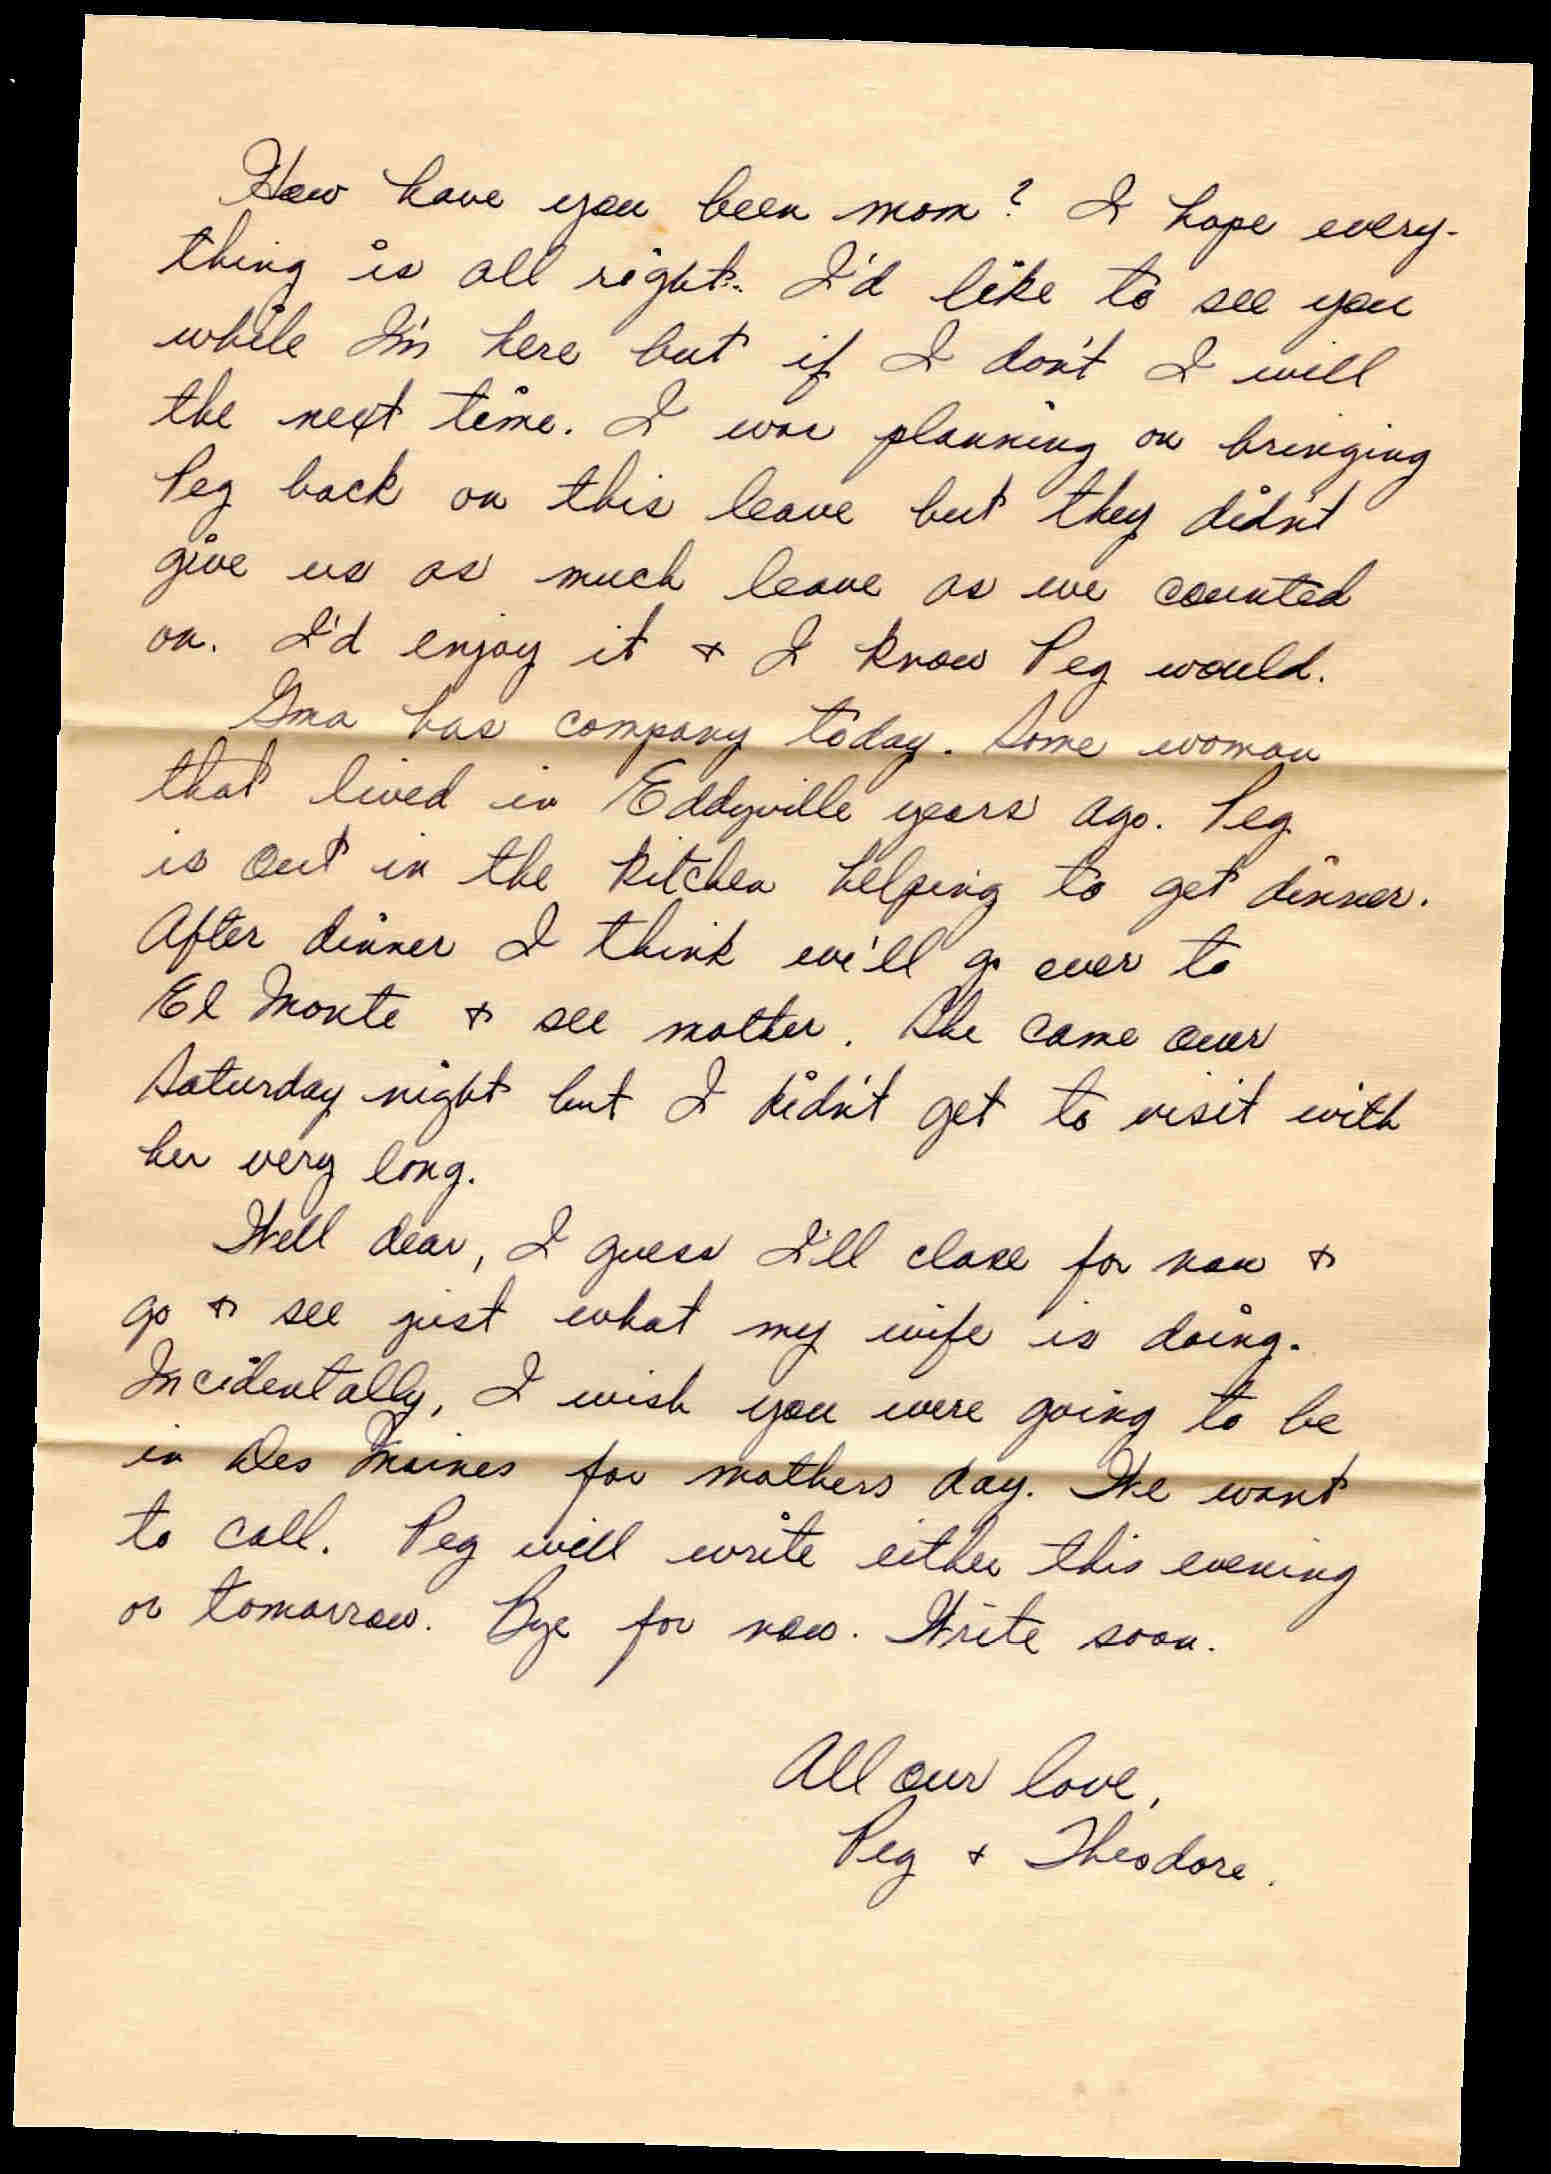 How have you been mom? I hope every-
thing is all right. I'd like to see you
while I'm here but if I don't I will
the next time. I was planning on bringing
Peg back on this leave but they didn't
give us as much leave as we counted
on. I'd enjoy it & I know Peg would.
Gma has company today. Some woman
that lived in Eddyville years ago. Peg
is out in the kitchen helping to get dinner.
After dinner I think we'll go over to
El Monte & see mother. She came over
Saturday night but I didn't get to visit with
her very long.
Well dear, I guess I'll close for now &
go & see just what my wife is doing.
Incidentally, I wish you were going to be
in Des Moines for mothers day. We want
to call. Peg will write either this evening
or tomorrow. Bye for now. Write soon.
All our love,
Peg & Theodore.